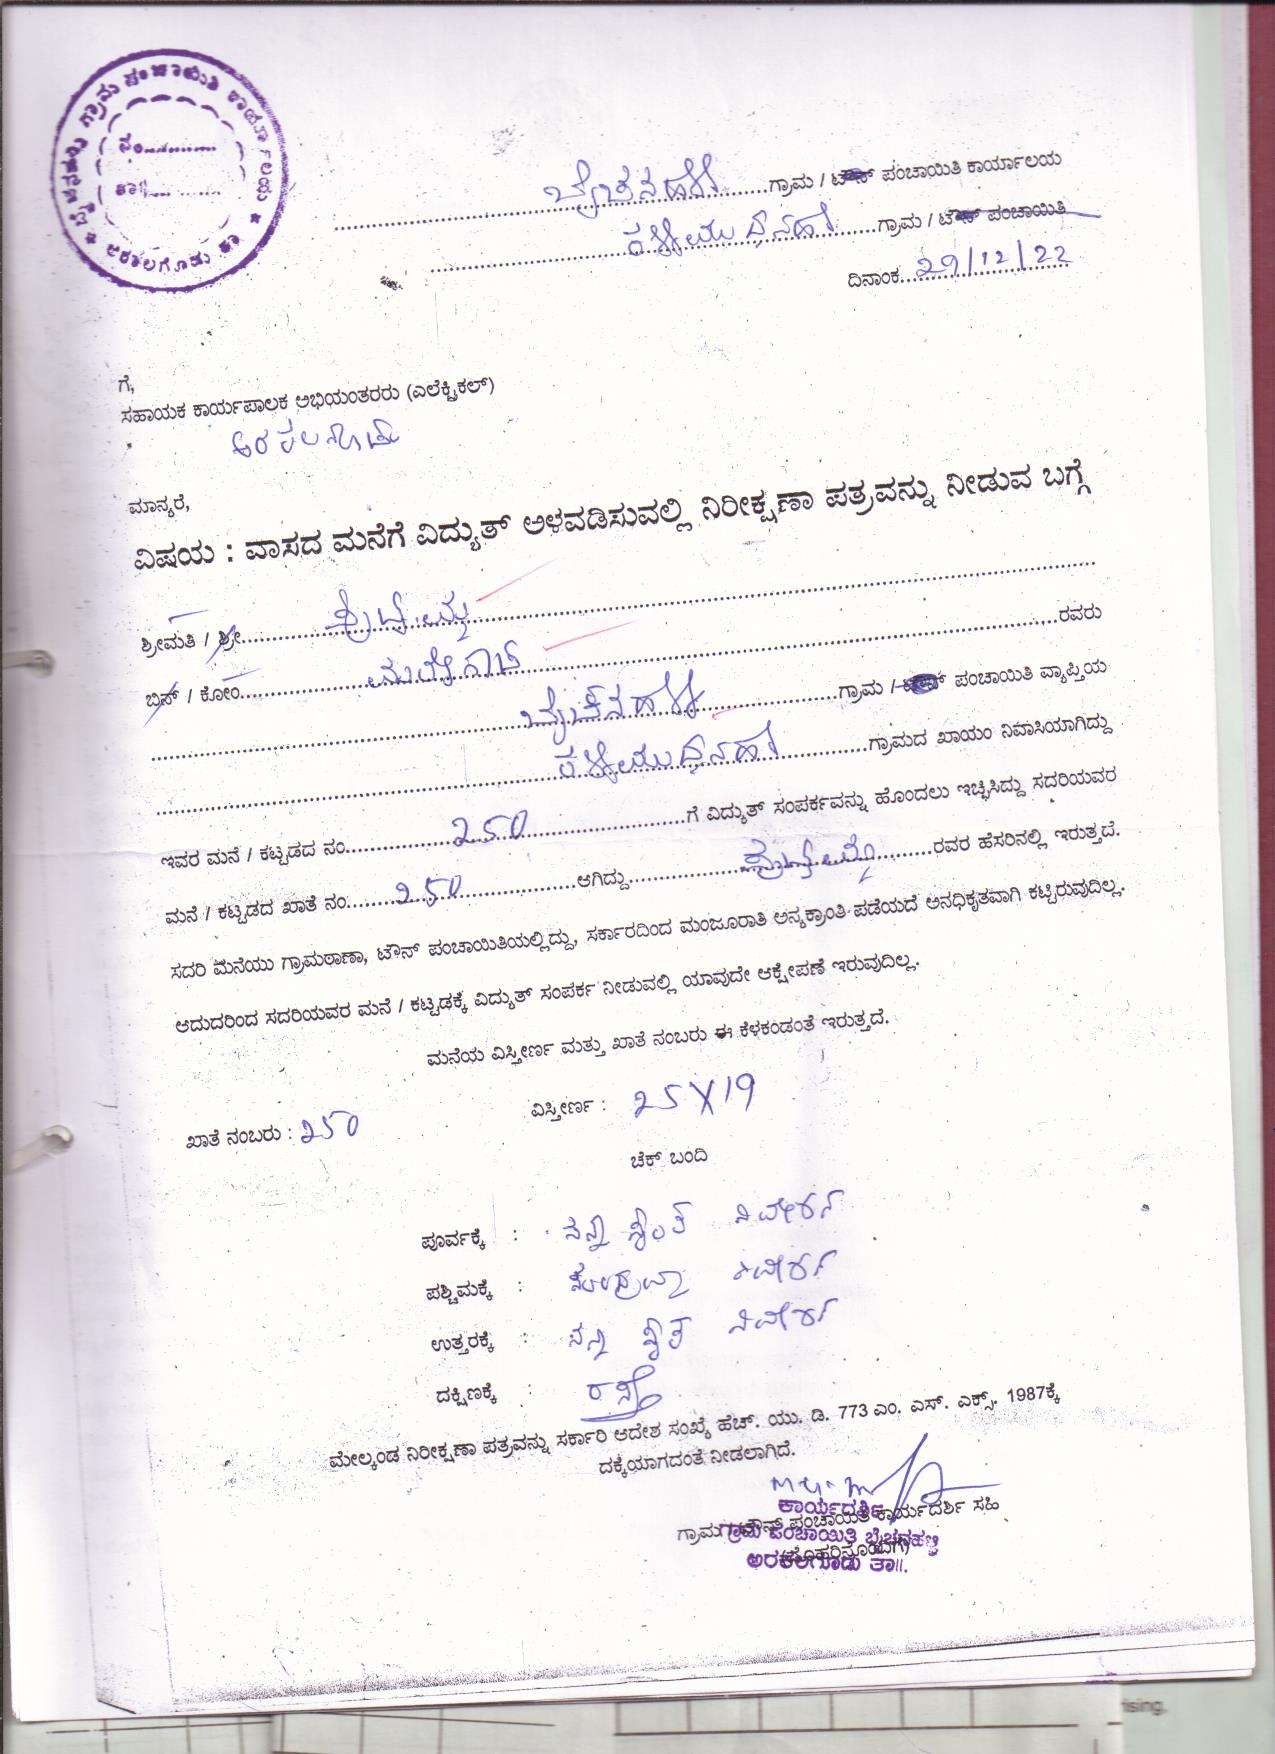 ಗ್ರಾಮ ಪಂಚಾಯಿತಿ
ನಂ...............
ಬೈಚನಹಳ್ಳಿ ಗ್ರಾಮ / ಟೌನ್ ಪಂಚಾಯಿತಿ ಕಾರ್ಯಾಲಯ
ಗ್ರಾಮ / ಟೌನ್ ಪಂಚಾಯಿತಿ
ದಿನಾಂಕ 29/12/22
ಗೆ,
ಸಹಾಯಕ ಕಾರ್ಯಪಾಲಕ ಅಭಿಯಂತರರು (ಎಲೆಕ್ಟ್ರಿಕಲ್)
ಅರಕಲಗೂಡು
ಮಾನ್ಯರೆ,
ವಿಷಯ : ವಾಸದ ಮನೆಗೆ ವಿದ್ಯುತ್ ಅಳವಡಿಸುವಲ್ಲಿ ನಿರೀಕ್ಷಣಾ ಪತ್ರವನ್ನು ನೀಡುವ ಬಗ್ಗೆ
ಶ್ರೀಮತಿ / ಶ್ರೀ
ಬಿನ್ / ಕೋಂ ರವರು
ಬೈಚನಹಳ್ಳಿ ಗ್ರಾಮ / ಟೌನ್ ಪಂಚಾಯಿತಿ ವ್ಯಾಪ್ತಿಯ
ಗ್ರಾಮದ ಖಾಯಂ ನಿವಾಸಿಯಾಗಿದ್ದು
ಇವರ ಮನೆ / ಕಟ್ಟಡದ ನಂ 250 ಗೆ ವಿದ್ಯುತ್ ಸಂಪರ್ಕವನ್ನು ಹೊಂದಲು ಇಚ್ಛಿಸಿದ್ದು ಸದರಿಯವರ
ಮನೆ / ಕಟ್ಟಡದ ಖಾತೆ ನಂ 250 ಆಗಿದ್ದು ರವರ ಹೆಸರಿನಲ್ಲಿ ಇರುತ್ತದೆ.
ಸದರಿ ಮನೆಯು ಗ್ರಾಮಠಾಣಾ, ಟೌನ್ ಪಂಚಾಯಿತಿಯಲ್ಲಿದ್ದು, ಸರ್ಕಾರದಿಂದ ಮಂಜೂರಾತಿ ಅನ್ಯಕ್ರಾಂತಿ ಪಡೆಯದೆ ಅನಧಿಕೃತವಾಗಿ ಕಟ್ಟಿರುವುದಿಲ್ಲ.
ಆದುದರಿಂದ ಸದರಿಯವರ ಮನೆ / ಕಟ್ಟಡಕ್ಕೆ ವಿದ್ಯುತ್ ಸಂಪರ್ಕ ನೀಡುವಲ್ಲಿ ಯಾವುದೇ ಆಕ್ಷೇಪಣೆ ಇರುವುದಿಲ್ಲ.
ಮನೆಯ ವಿಸ್ತೀರ್ಣ ಮತ್ತು ಖಾತೆ ನಂಬರು ಈ ಕೆಳಕಂಡಂತೆ ಇರುತ್ತದೆ.
ಖಾತೆ ನಂಬರು : 250 ವಿಸ್ತೀರ್ಣ : 25 X 19
ಚೆಕ್ ಬಂದಿ
ಪೂರ್ವಕ್ಕೆ : ನಿವೇಶನ
ಪಶ್ಚಿಮಕ್ಕೆ : ನಿವೇಶನ
ಉತ್ತರಕ್ಕೆ : ನಿವೇಶನ
ದಕ್ಷಿಣಕ್ಕೆ : ರಸ್ತೆ
ಮೇಲ್ಕಂಡ ನಿರೀಕ್ಷಣಾ ಪತ್ರವನ್ನು ಸರ್ಕಾರಿ ಆದೇಶ ಸಂಖ್ಯೆ ಹೆಚ್. ಯು. ಡಿ. 773 ಎಂ. ಎಸ್. ಎಕ್ಸ್. 1987ಕ್ಕೆ
ದಕ್ಕೆಯಾಗದಂತೆ ನೀಡಲಾಗಿದೆ.
ಕಾರ್ಯದರ್ಶಿ
ಪಂಚಾಯಿತಿ ಕಾರ್ಯದರ್ಶಿ ಸಹಿ
ಗ್ರಾಮ ಪಂಚಾಯಿತಿ ಬೈಚನಹಳ್ಳಿ
(ಮೊಹರಿನೊಂದಿಗೆ)
ಅರಕಲಗೂಡು ತಾ||.